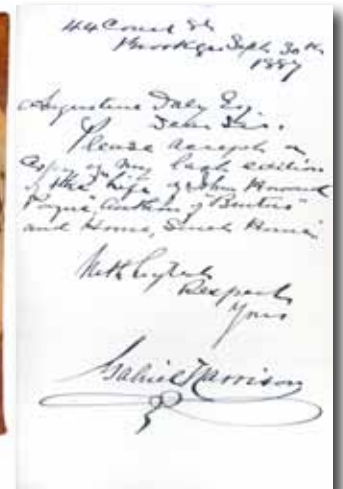 44 Court St
Brooklyn Sept 30th
1887
Augustine Daly Esq
Dear Sir.
Please accept a
Copy of my last edition
of the Life of John Howard
Payne, Author of "Brutus"
and Home, Sweet Home
With
Respects
Yours
Gabriel Harrison